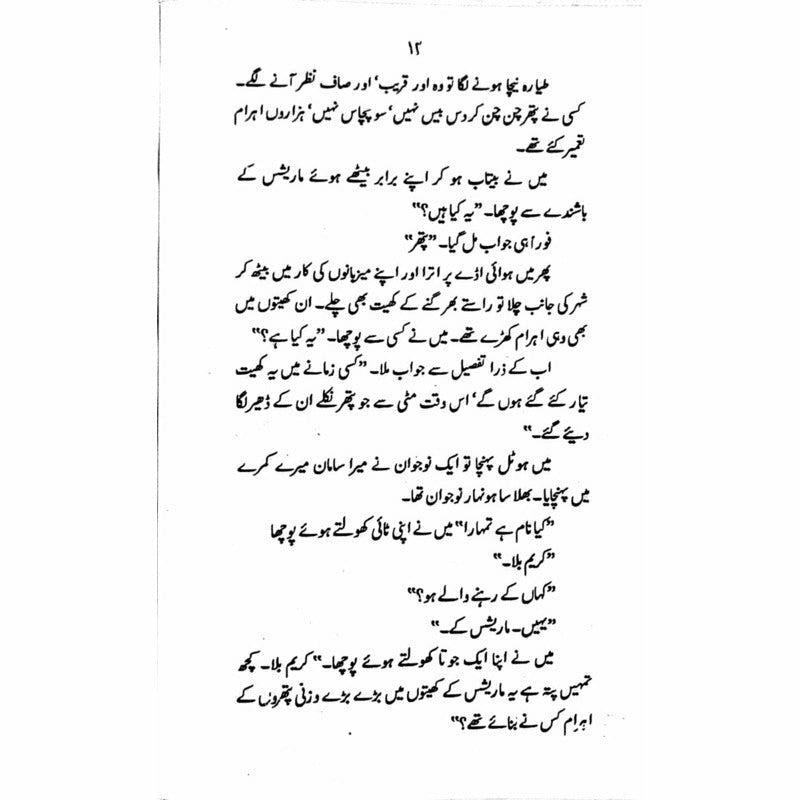 ۱۲
طیارہ نیچا ہونے لگا تو وہ اور قریب‘ اور صاف نظر آنے لگے۔
کسی نے پتھر چن چن کر دس بیس نہیں‘ سو پچاس نہیں‘ ہزاروں اہرام
تعمیر کئے تھے۔
میں نے بیتاب ہو کر اپنے برابر بیٹھے ہوئے ماریشس کے
باشندے سے پوچھا۔ ”یہ کیا ہیں؟“
فوراً ہی جواب مل گیا۔ ”پتھر“
پھر میں ہوائی اڈے پر اترا اور اپنے میزبانوں کی کار میں بیٹھ کر
شہر کی جانب چلا تو راستے بھر گنے کے کھیت بھی چلے۔ ان کھیتوں میں
بھی وہی اہرام کھڑے تھے۔ میں نے کسی سے پوچھا۔ ”یہ کیا ہے؟“
اب کے ذرا تفصیل سے جواب ملا۔ ”کسی زمانے میں یہ کھیت
تیار کئے گئے ہوں گے‘ اس وقت مٹی سے جو پتھر نکلے ان کے ڈھیر لگا
دیئے گئے۔“
میں ہوٹل پہنچا تو ایک نوجوان نے میرا سامان میرے کمرے
میں پہنچایا۔ بھلا سا ہونہار نوجوان تھا۔
”کیا نام ہے تمہارا“ میں نے اپنی ٹائی کھولتے ہوئے پوچھا
”کریم بلا۔“
”کہاں کے رہنے والے ہو؟“
”یہیں۔ ماریشس کے۔“
میں نے اپنا ایک جوتا کھولتے ہوئے پوچھا۔ ”کریم بلا۔ کچھ
تمہیں پتہ ہے یہ ماریشس کے کھیتوں میں بڑے بڑے وزنی پتھروں کے
اہرام کس نے بنائے تھے؟“